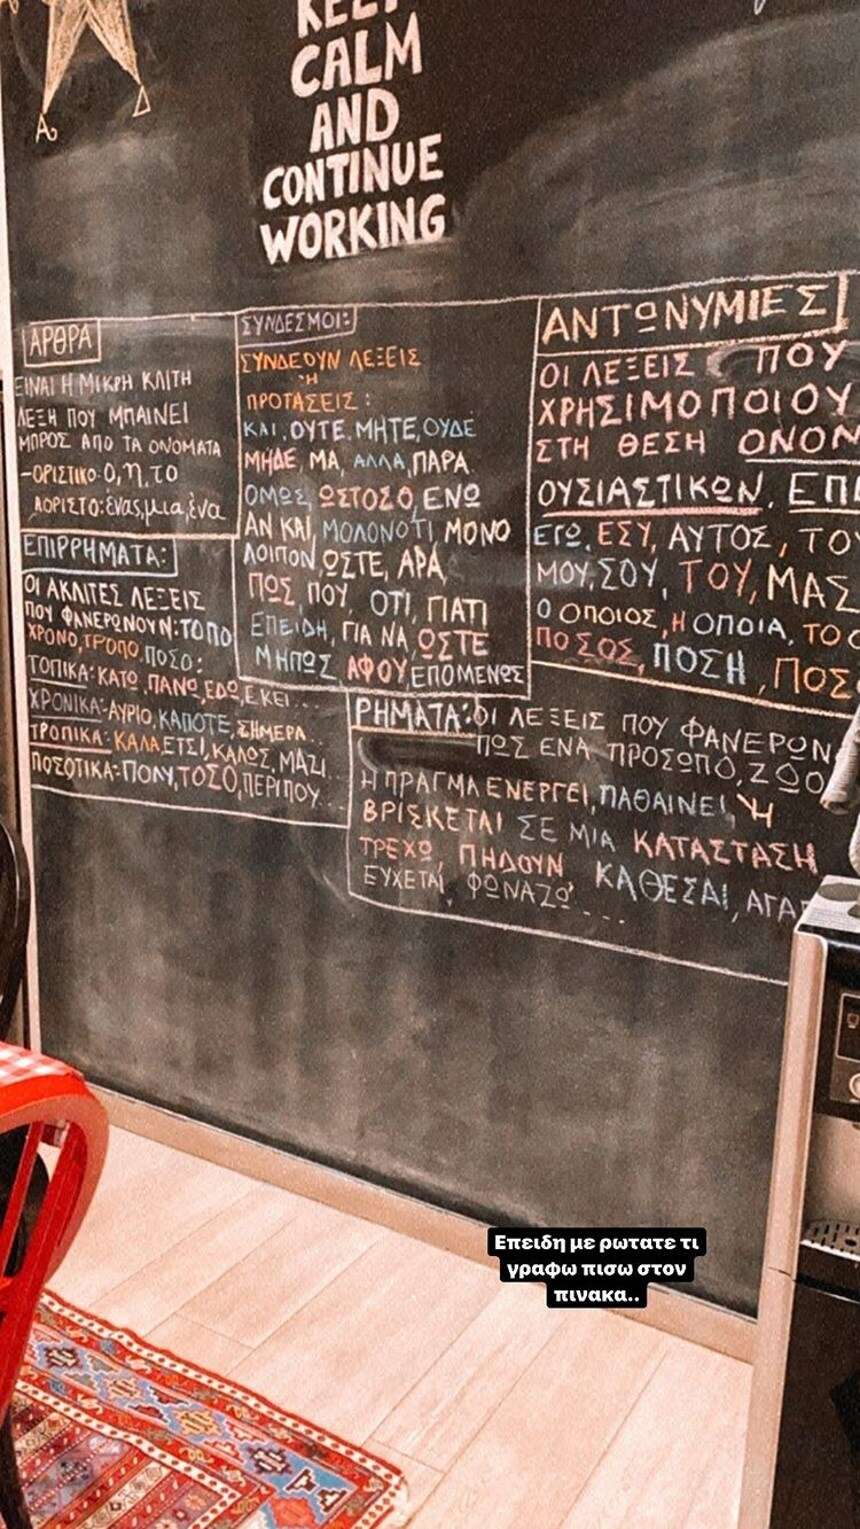 KEEP
CALM
AND
CONTINUE
WORKING
ΑΡΘΡΑ
ΕΙΝΑΙ Η ΜΙΚΡΗ ΚΛΙΤΗ
ΛΕΞΗ ΠΟΥ ΜΠΑΙΝΕΙ
ΜΠΡΟΣ ΑΠΟ ΤΑ ΟΝΟΜΑΤΑ
-ΟΡΙΣΤΙΚΟ: Ο, η, το
ΑΟΡΙΣΤΟ: ένας, μια, ένα
ΕΠΙΡΡΗΜΑΤΑ:
ΟΙ ΑΚΛΙΤΕΣ ΛΕΞΕΙΣ
ΠΟΥ ΦΑΝΕΡΩΝΟΥΝ: ΤΟΠΟ
ΧΡΟΝΟ, ΤΡΟΠΟ, ΠΟΣΟ:
ΤΟΠΙΚΑ: ΚΑΤΩ, ΠΑΝΩ, ΕΔΩ, ΕΚΕΙ...
ΧΡΟΝΙΚΑ:-ΑΥΡΙΟ, ΚΑΠΟΤΕ, ΣΗΜΕΡΑ...
ΤΡΟΠΙΚΑ: ΚΑΛΑ, ΕΤΣΙ, ΚΑΛΩΣ, ΜΑΖΙ...
ΠΟΣΟΤΙΚΑ:-ΠΟΛΥ, ΤΟΣΟ, ΠΕΡΙΠΟΥ...
ΣΥΝΔΕΣΜΟΙ:
ΣΥΝΔΕΟΥΝ ΛΕΞΕΙΣ
Ή
ΠΡΟΤΑΣΕΙΣ:
ΚΑΙ, ΟΥΤΕ, ΜΗΤΕ, ΟΥΔΕ
ΜΗΔΕ, ΜΑ, ΑΛΛΑ, ΠΑΡΑ
ΟΜΩΣ, ΩΣΤΟΣΟ, ΕΝΩ
ΑΝ ΚΑΙ, ΜΟΛΟΝΟΤΙ, ΜΟΝΟ
ΛΟΙΠΟΝ, ΩΣΤΕ, ΑΡΑ,
ΠΩΣ, ΠΟΥ, ΟΤΙ, ΓΙΑΤΙ
ΕΠΕΙΔΗ, ΓΙΑ ΝΑ, ΩΣΤΕ
ΜΗΠΩΣ, ΑΦΟΥ, ΕΠΟΜΕΝΩΣ
ΑΝΤΩΝΥΜΙΕΣ
ΟΙ ΛΕΞΕΙΣ ΠΟΥ
ΧΡΗΣΙΜΟΠΟΙΟΥ
ΣΤΗ ΘΕΣΗ ΟΝΟΜ
ΟΥΣΙΑΣΤΙΚΩΝ, ΕΠΙ
ΕΓΩ, ΕΣΥ, ΑΥΤΟΣ, ΤΟΥ
ΜΟΥ, ΣΟΥ, ΤΟΥ, ΜΑΣ
Ο ΟΠΟΙΟΣ, Η ΟΠΟΙΑ, ΤΟ Ο
ΠΟΣΟΣ, ΠΟΣΗ, ΠΟΣ
ΡΗΜΑΤΑ: ΟΙ ΛΕΞΕΙΣ ΠΟΥ ΦΑΝΕΡΩΝ
ΠΩΣ ΕΝΑ ΠΡΟΣΩΠΟ, ΖΩΟ
Η ΠΡΑΓΜΑ ΕΝΕΡΓΕΙ, ΠΑΘΑΙΝΕΙ, Ή
ΒΡΙΣΚΕΤΑΙ ΣΕ ΜΙΑ ΚΑΤΑΣΤΑΣΗ
ΤΡΕΧΩ, ΠΗΔΟΥΝ ΚΑΘΕΣΑΙ, ΑΓΑΠ
ΕΥΧΕΤΑΙ, ΦΩΝΑΖΩ....
Επειδη με ρωτατε τι
γραφω πισω στον
πινακα..